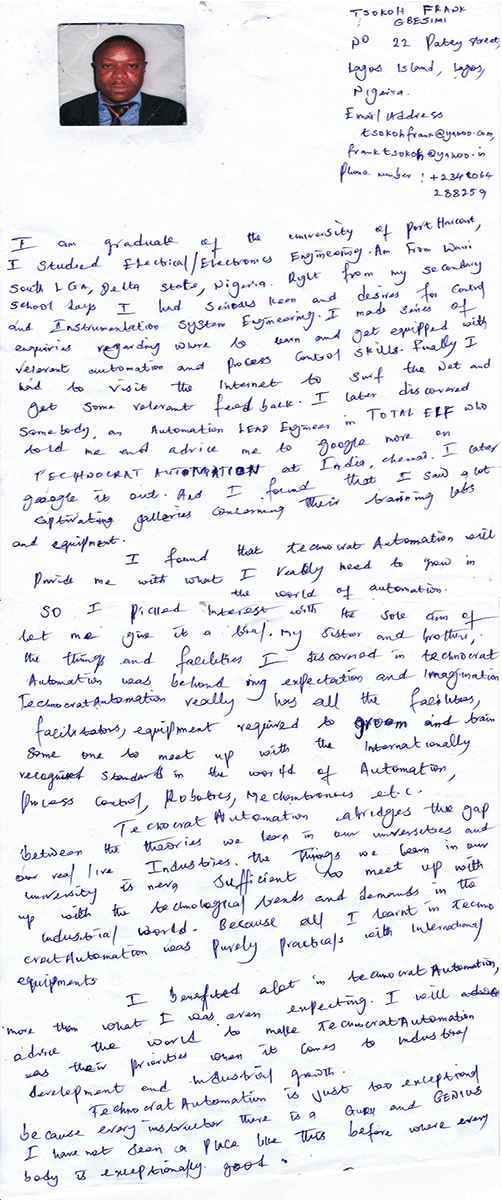 TSOKOH FRANK
GBESIMI
NO 22 Patey street,
Lagos Island, Lagos,
Nigeria.
Email Address
tsokohfrank@yahoo.com,
franktsokoh@yahoo.in
Phone number : +2348064
288259
I am graduate of the university of Port Harcourt,
I studied Electrical/Electronics Engineering. Am From Warri
South LGA, Delta State, Nigeria. Right from my secondary
school days I had serious keen and desires for Control
and Instrumentation System Engineering. I made series of
enquiries regarding where to learn and get equipped with
relevant automation and Process Control Skills. Finally I
had to visit the Internet to surf the Net and
get some relevant feed back. I later discovered
somebody, an Automation LEAD Engineer in TOTAL ELF who
told me and advice me to google more on
TECHNOCRAT AUTOMATION at India, chennai. I later
google it out. And I found that I saw a lot
captivating galleries concerning their training labs
and equipment.
I found that technocrat Automation will
Provide me with what I really need to grow in
the world of automation.
SO I picked interest with the sole aim of
let me give it a trial. My sister and brothers,
the things and facilities I discovered in technocrat
Automation was behond my expectation and Imagination
Technocrat Automation really has all the facilities,
facilitators, equipment required to groom and train
some one to meet up with the Internationally
recognised standards in the world of Automation,
Process Control, Robotics, Mechantronics e.t.c.
Tecnocrat Automation abridges the gap
between the theories we learn in our universities and
our real/live Industries. the things we learn in our
university is never sufficient to meet up with
up with the technological trends and demands in the
Industrial world. Because all I learnt in Techno
crat Automation was purely practicals with International
equipments
I benefited alot in technocrat Automation,
more than what I was even expecting. I will
advice the world to make Technocrat Automation
as their priorities when it comes to Industrial
development and industrial growth.
Technocrat Automation is just too exceptional
because every instructor there is a GURU and GENIUS
I have not seen a place like this before where every
body is exceptionally good.